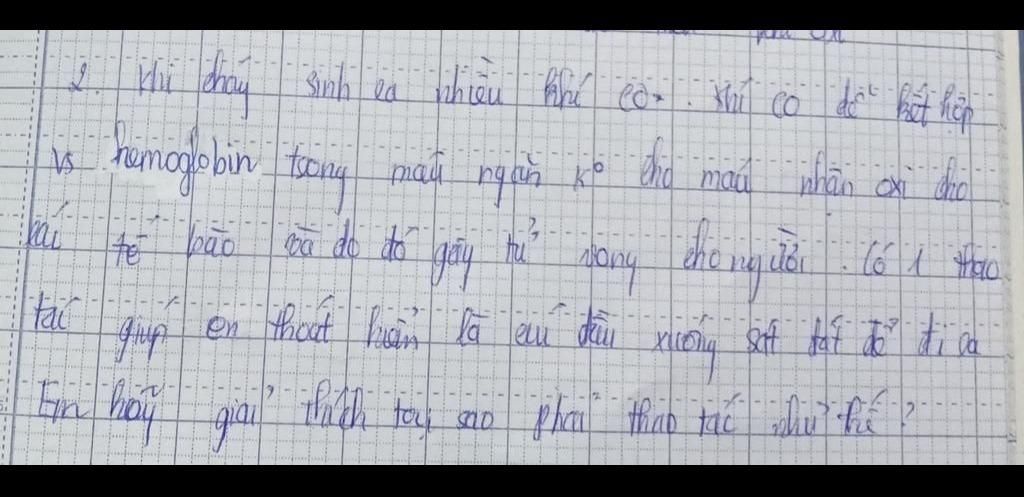 2. Khi cháy sinh ra nhiều khí CO. Khí CO dễ kết hợp
vs hemoglobin trong máu ngăn ko cho máu nhận oxi cho
các tế bào và do đó gây tử vong cho người. Có 1 thao
tác giúp en thoát hiểm là cúi đầu xuống sát đất để đi ra
Em hãy giải thích tại sao phải thao tác như thế?